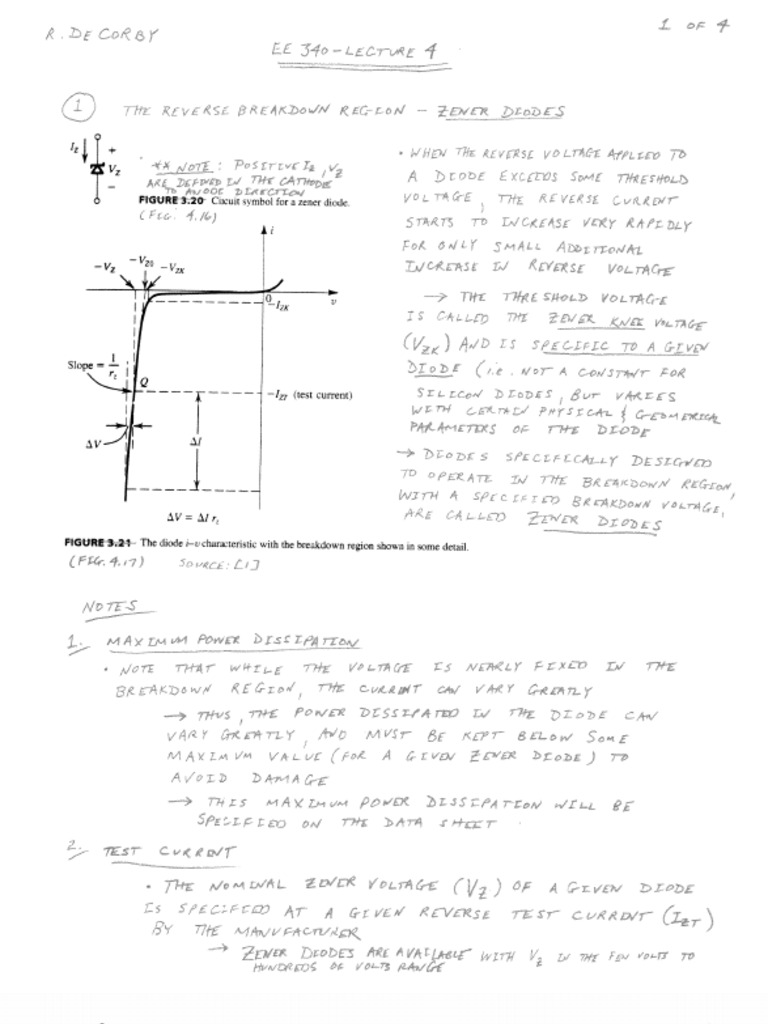 R. DE CORBY
1 OF 4
EE 340 - LECTURE 4
1 THE REVERSE BREAKDOWN REGION - ZENER DIODES
I_Z + V_Z -
** NOTE: POSITIVE I_Z, V_Z
ARE DEFINED IN THE CATHODE
TO ANODE DIRECTION
FIGURE 3.20 Circuit symbol for a zener diode.
(FIG. 4.16)
• WHEN THE REVERSE VOLTAGE APPLIED TO
A DIODE EXCEEDS SOME THRESHOLD
VOLTAGE, THE REVERSE CURRENT
STARTS TO INCREASE VERY RAPIDLY
FOR ONLY SMALL ADDITIONAL
INCREASE IN REVERSE VOLTAGE
→ THE THRESHOLD VOLTAGE
IS CALLED THE ZENER KNEE VOLTAGE
(V_ZK) AND IS SPECIFIC TO A GIVEN
DIODE (i.e. NOT A CONSTANT FOR
SILICON DIODES, BUT VARIES
WITH CERTAIN PHYSICAL & GEOMERICAL
PARAMETERS OF THE DIODE
→ DIODES SPECIFICALLY DESIGNED
TO OPERATE IN THE BREAKDOWN REGION,
WITH A SPECIFIED BREAKDOWN VOLTAGE,
ARE CALLED ZENER DIODES
i
-V_Z -V_Z0 -V_ZK
0
v
-I_ZK
Slope = 1/r_t
Q
-I_ZT (test current)
ΔV
ΔI
ΔV = ΔI r_t
FIGURE 3.21 The diode i-v characteristic with the breakdown region shown in some detail.
(FIG. 4.17) SOURCE: [1]
NOTES
1. MAXIMUM POWER DISSIPATION
• NOTE THAT WHILE THE VOLTAGE IS NEARLY FIXED IN THE
BREAKDOWN REGION, THE CURRENT CAN VARY GREATLY
→ THUS, THE POWER DISSIPATED IN THE DIODE CAN
VARY GREATLY, AND MUST BE KEPT BELOW SOME
MAXIMUM VALUE (FOR A GIVEN ZENER DIODE) TO
AVOID DAMAGE
→ THIS MAXIMUM POWER DISSIPATION WILL BE
SPECIFIED ON THE DATA SHEET
2. TEST CURRENT
• THE NOMINAL ZENER VOLTAGE (V_Z) OF A GIVEN DIODE
IS SPECIFIED AT A GIVEN REVERSE TEST CURRENT (I_ZT)
BY THE MANUFACTURER
→ ZENER DIODES ARE AVAILABLE WITH V_Z IN THE FEW VOLTS TO
HUNDREDS OF VOLTS RANGE